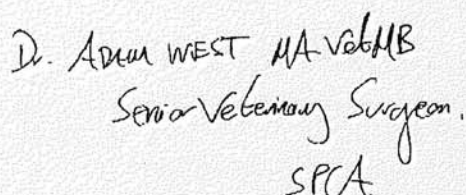 Dr. ADAM WEST MA VetMB
Senior Veterinary Surgeon.
SPCA